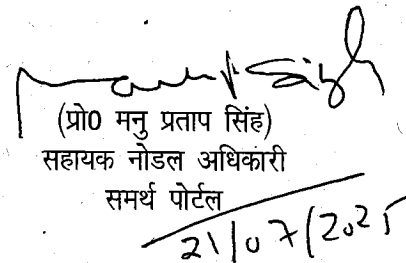 (प्रो0 मनु प्रताप सिंह)
सहायक नोडल अधिकारी
समर्थ पोर्टल
21/07/2025